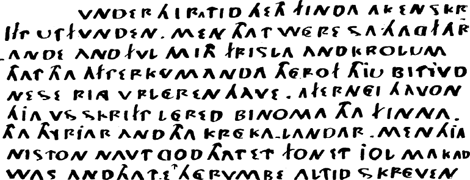 VNDER THIRA TID HETH FINDA AK EN SKR
IFT UTFVNDEN . MEN THAT WERE SA HAGFAR
ANDE AND FVL MITH FRISLA AND KROLUM
THAT THA AFTERKVMANDA THEROF THIU BITIVD
NESE VRLEREN HAVE . AFTERNEI HAVON
HIA VS SKRIFT LERED BINOMA THA FINNA .
THA THYRIAR AND THA KREKA-LANDAR . MEN HIA
NISTON NAVT GOD THAT ET FON ET IOL MAKAD
WAS AND THAT ET THERVMBE ALTID SKREVEN